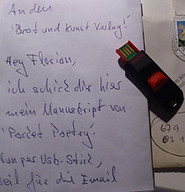 An den
"Brot und Kunst Verlag"!
Hey Florian,
ich schick dir hier
mein Manuskript von
"Pocket Poetry".
Nun per Usb-Stick,
weil für die Email